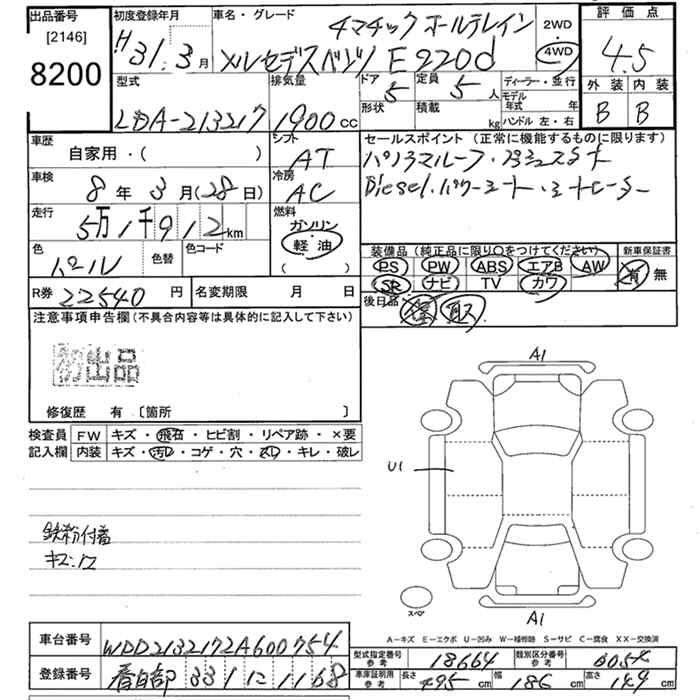 出品番号 初度登録年月 車名・グレード 4マチック オールテレイン 2WD 評価点
[2146] H31.3月 メルセデスベンツ E220d 4WD 4.5
8200
型式 排気量 ドア 定員 ディーラー・並行 外装 内装
LDA-213217 1900cc 5 5人 モデル年式 年 B B
形状 積載 kg ハンドル 左・右
車歴 シフト セールスポイント (正常に機能するものに限ります)
自家用・( ) AT パノラマルーフ・
車検 冷房 Diesel・パワーシート・シートヒーター
8年3月(28日) AC
走行 燃料
5万1千912km ガソリン・軽油
( )
色 色替 色コード 装備品 (純正品に限り○をつけてください) 新車保証書
パール PS PW ABS エアB AW 有 無
SR ナビ TV カワ
R券 22540円 名変期限 月 日 後日品
注意事項申告欄 (不具合内容等は具体的に記入して下さい)
初出品
修復歴 有 〔箇所 〕
検査員 FW キズ・飛石・ヒビ割・リペア跡・×要
記入欄 内装 キズ・汚レ・コゲ・穴・スレ・キレ・破レ
A1
U1
鉄粉付着
キズ.凹
スペア
A1
A-キズ E-エクボ U-凹み W-補修跡 S-サビ C-腐食 XX-交換済
車台番号 WDD2132172A600754 型式指定番号 参考 18664 類別区分番号 参考
登録番号 331 1168 車庫証明用 参考 長さ 495cm 幅 186cm 高さ 149cm